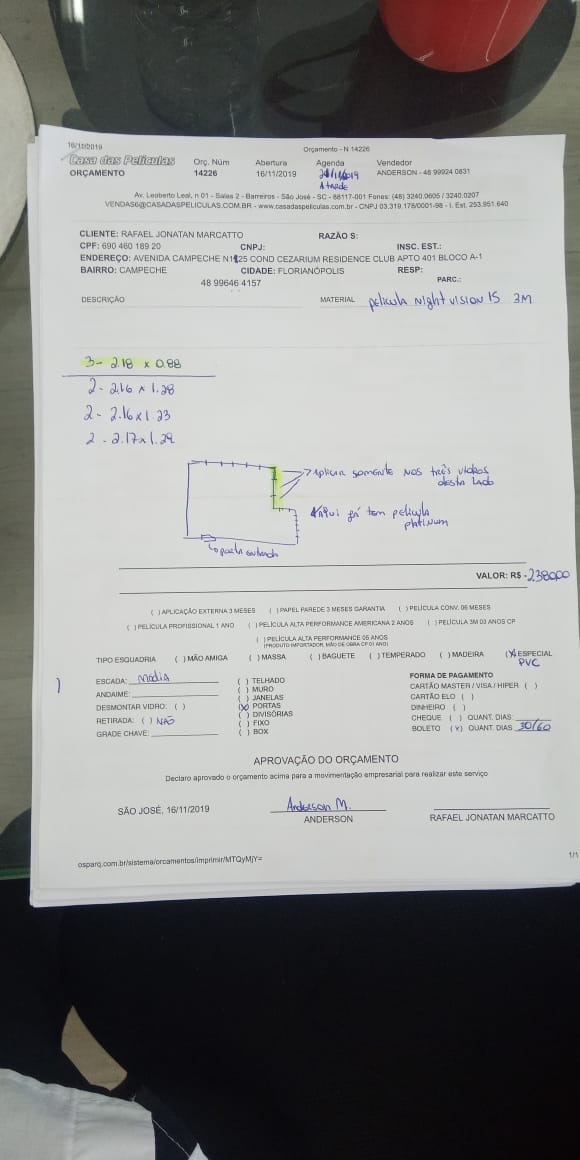 16/11/2019 Orçamento - N 14226
Casa das Películas Orç. Núm Abertura Agenda Vendedor
ORÇAMENTO 14226 16/11/2019 ANDERSON - 48 99924 0831
A tarde
Av. Leoberto Leal, n 01 - Salas 2 - Barreiros - São José - SC - 88117-001 Fones: (48) 3240.0605 / 3240.0207
VENDAS6@CASADASPELICULAS.COM.BR - www.casadaspeliculas.com.br - CNPJ 03.319.178/0001-98 - I. Est. 253.951.640
CLIENTE: RAFAEL JONATAN MARCATTO RAZÃO S:
CPF: 690 460 189 20 CNPJ: INSC. EST.:
ENDEREÇO: AVENIDA CAMPECHE N1125 COND CEZARIUM RESIDENCE CLUB APTO 401 BLOCO A-1
BAIRRO: CAMPECHE CIDADE: FLORIANÓPOLIS RESP:
48 99646 4157 PARC.:
DESCRIÇÃO MATERIAL película Night vision 15 3M
3- 2.18 x 0.88
2 - 2.16 x 1.28
2 - 2.16 x 1.23
2 - 2.17 x 1.29
Aplicar somente nos três vidros
desta lado
Aqui já tem película
platinum
porta entrada
VALOR: R$ - 238000
( ) APLICAÇÃO EXTERNA 3 MESES ( ) PAPEL PAREDE 3 MESES GARANTIA ( ) PELÍCULA CONV. 06 MESES
( ) PELÍCULA PROFISSIONAL 1 ANO ( ) PELÍCULA ALTA PERFORMANCE AMERICANA 2 ANOS ( ) PELÍCULA 3M 03 ANOS CP
( ) PELÍCULA ALTA PERFORMANCE 05 ANOS
(PRODUTO IMPORTADOR, MÃO DE OBRA CP 01 ANO)
TIPO ESQUADRIA ( ) MÃO AMIGA ( ) MASSA ( ) BAGUETE ( ) TEMPERADO ( ) MADEIRA (X) ESPECIAL
PVC
ESCADA: Media ( ) TELHADO FORMA DE PAGAMENTO
ANDAIME: ( ) MURO CARTÃO MASTER / VISA / HIPER ( )
( ) JANELAS CARTÃO ELO ( )
DESMONTAR VIDRO: ( ) (X) PORTAS DINHEIRO ( )
RETIRADA: ( ) NÃO ( ) DIVISÓRIAS CHEQUE ( ) QUANT. DIAS:
( ) FIXO BOLETO (X) QUANT. DIAS: 30/60
GRADE CHAVE: ( ) BOX
APROVAÇÃO DO ORÇAMENTO
Declaro aprovado o orçamento acima para a movimentação empresarial para realizar este serviço
SÃO JOSÉ, 16/11/2019 Anderson M.
ANDERSON RAFAEL JONATAN MARCATTO
osparq.com.br/sistema/orcamentos/imprimir/MTQyMjY= 1/1